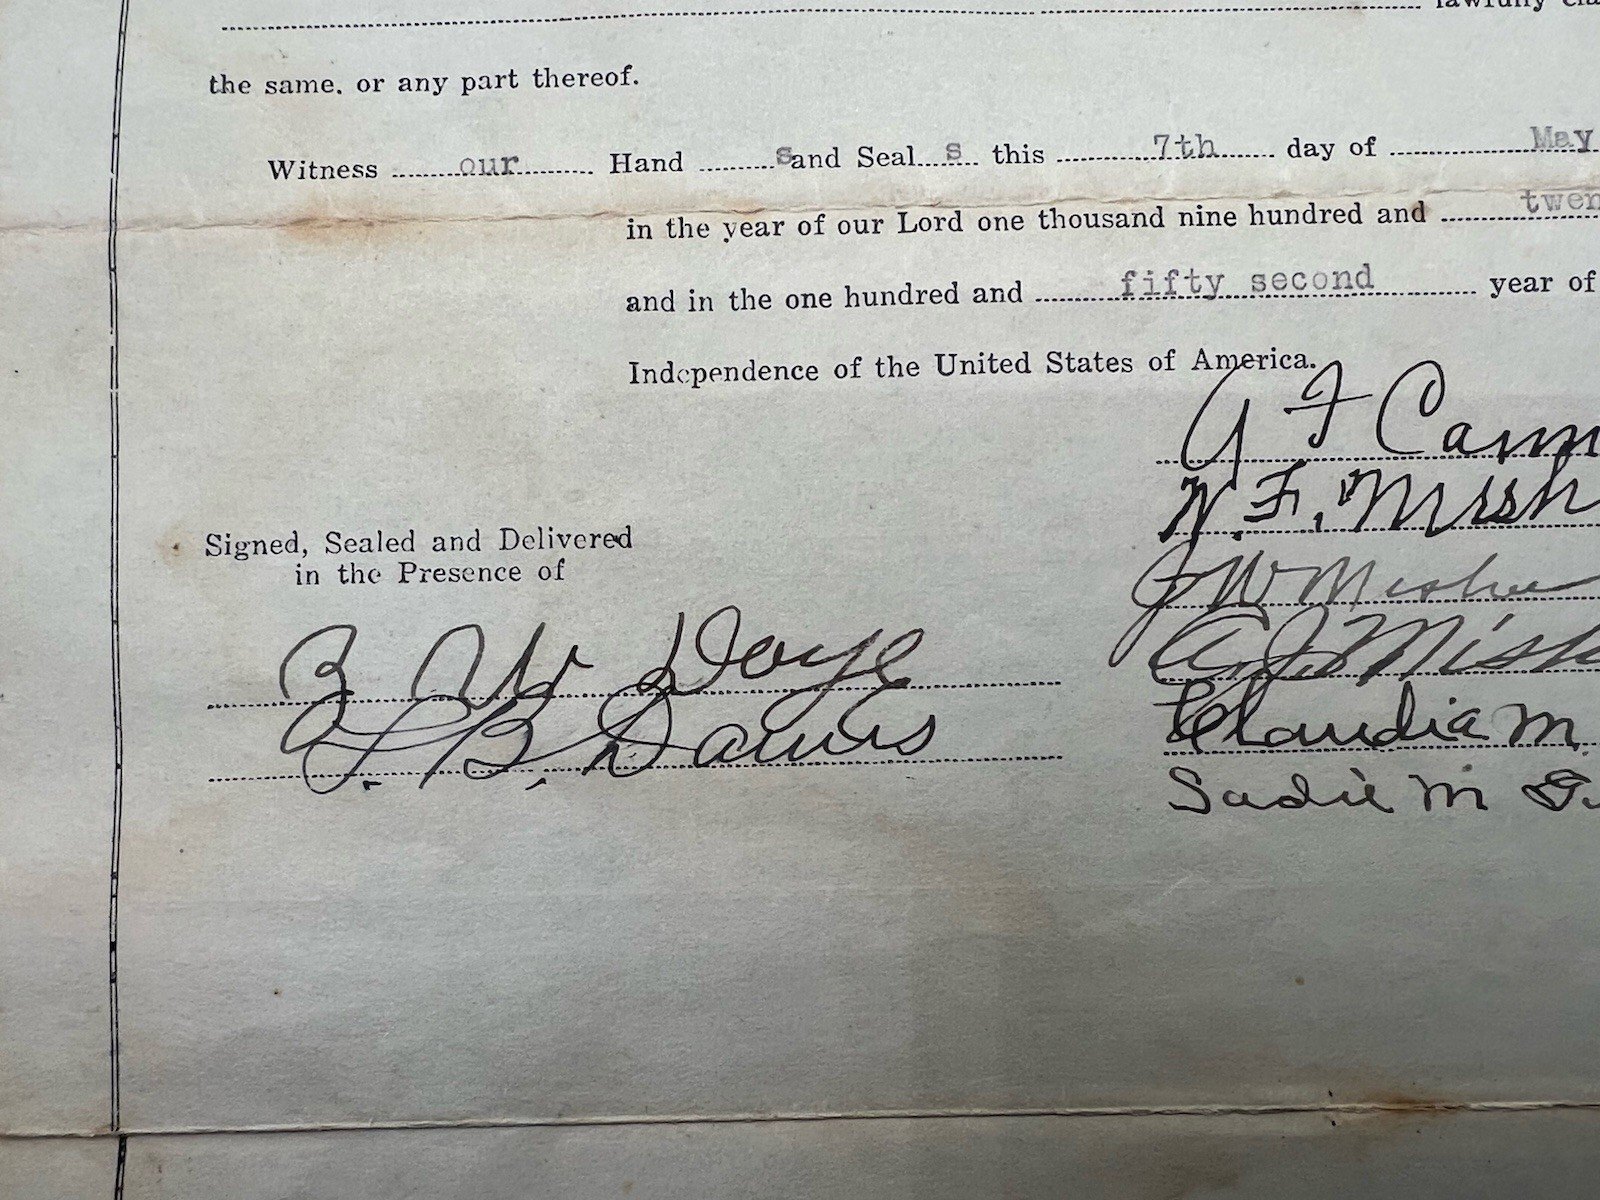 lawfully cla
the same, or any part thereof.
Witness our Hand s and Seal s this 7th day of May
in the year of our Lord one thousand nine hundred and twen
and in the one hundred and fifty second year of
Independence of the United States of America.
A F Cann
W. F. Mish
Signed, Sealed and Delivered
in the Presence of
J W
A. J. Mish
Z W Hoye
Claudia M.
T. B. Dawes
Sadie M